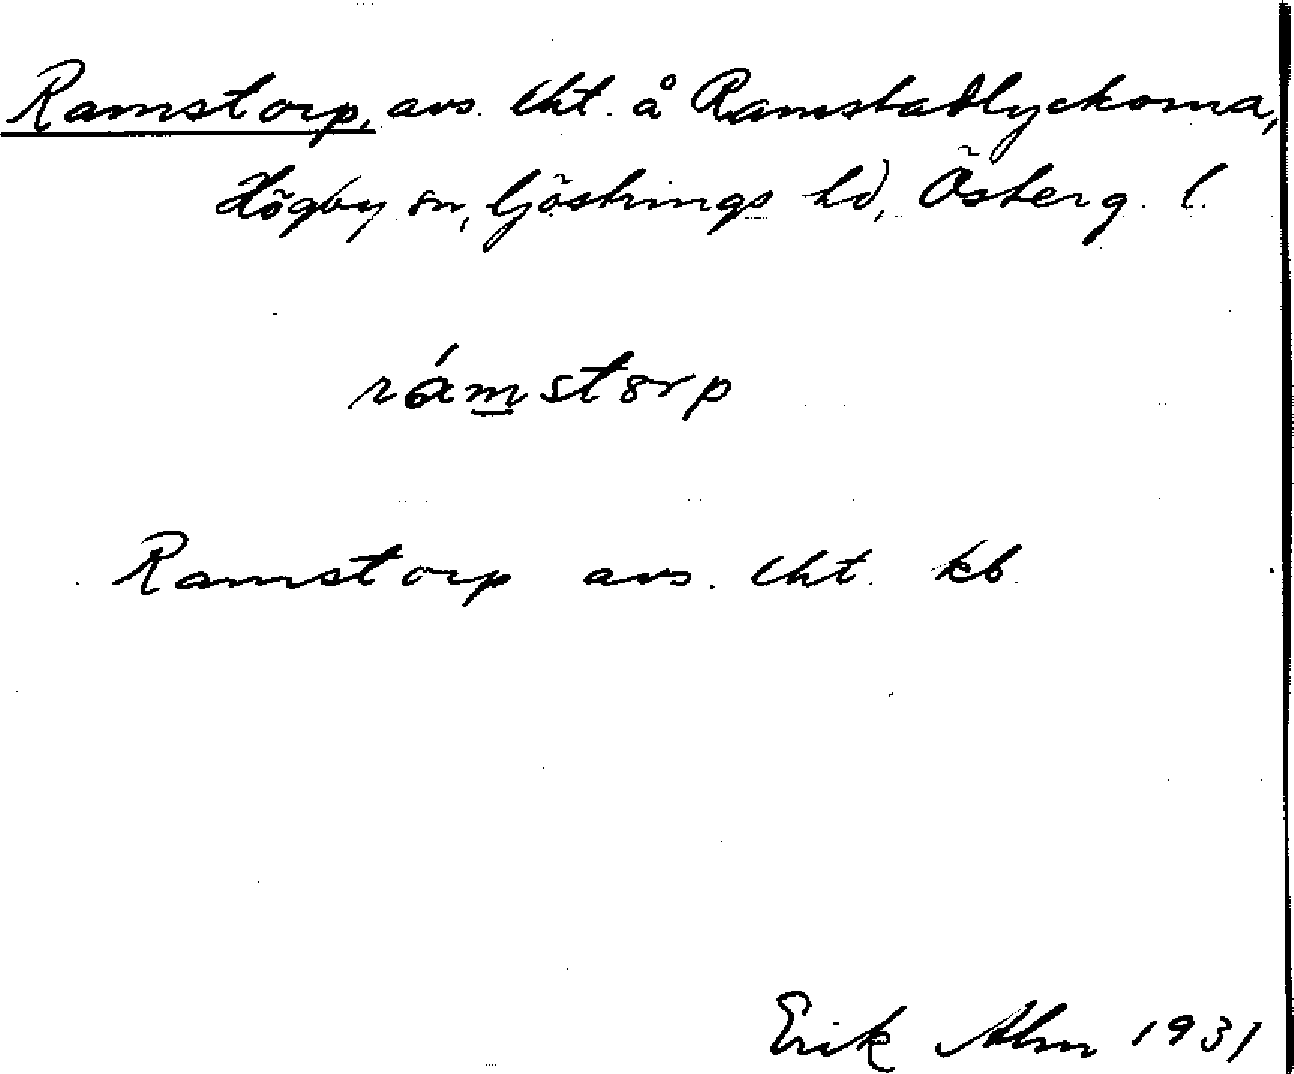 Ramstorp, avs. lht. å Ramstadlyckorna,
Högby sn, Göstrings hd, Österg. l.
rámstorp
Ramstorp avs. lht. kb
Erik Alm 1931